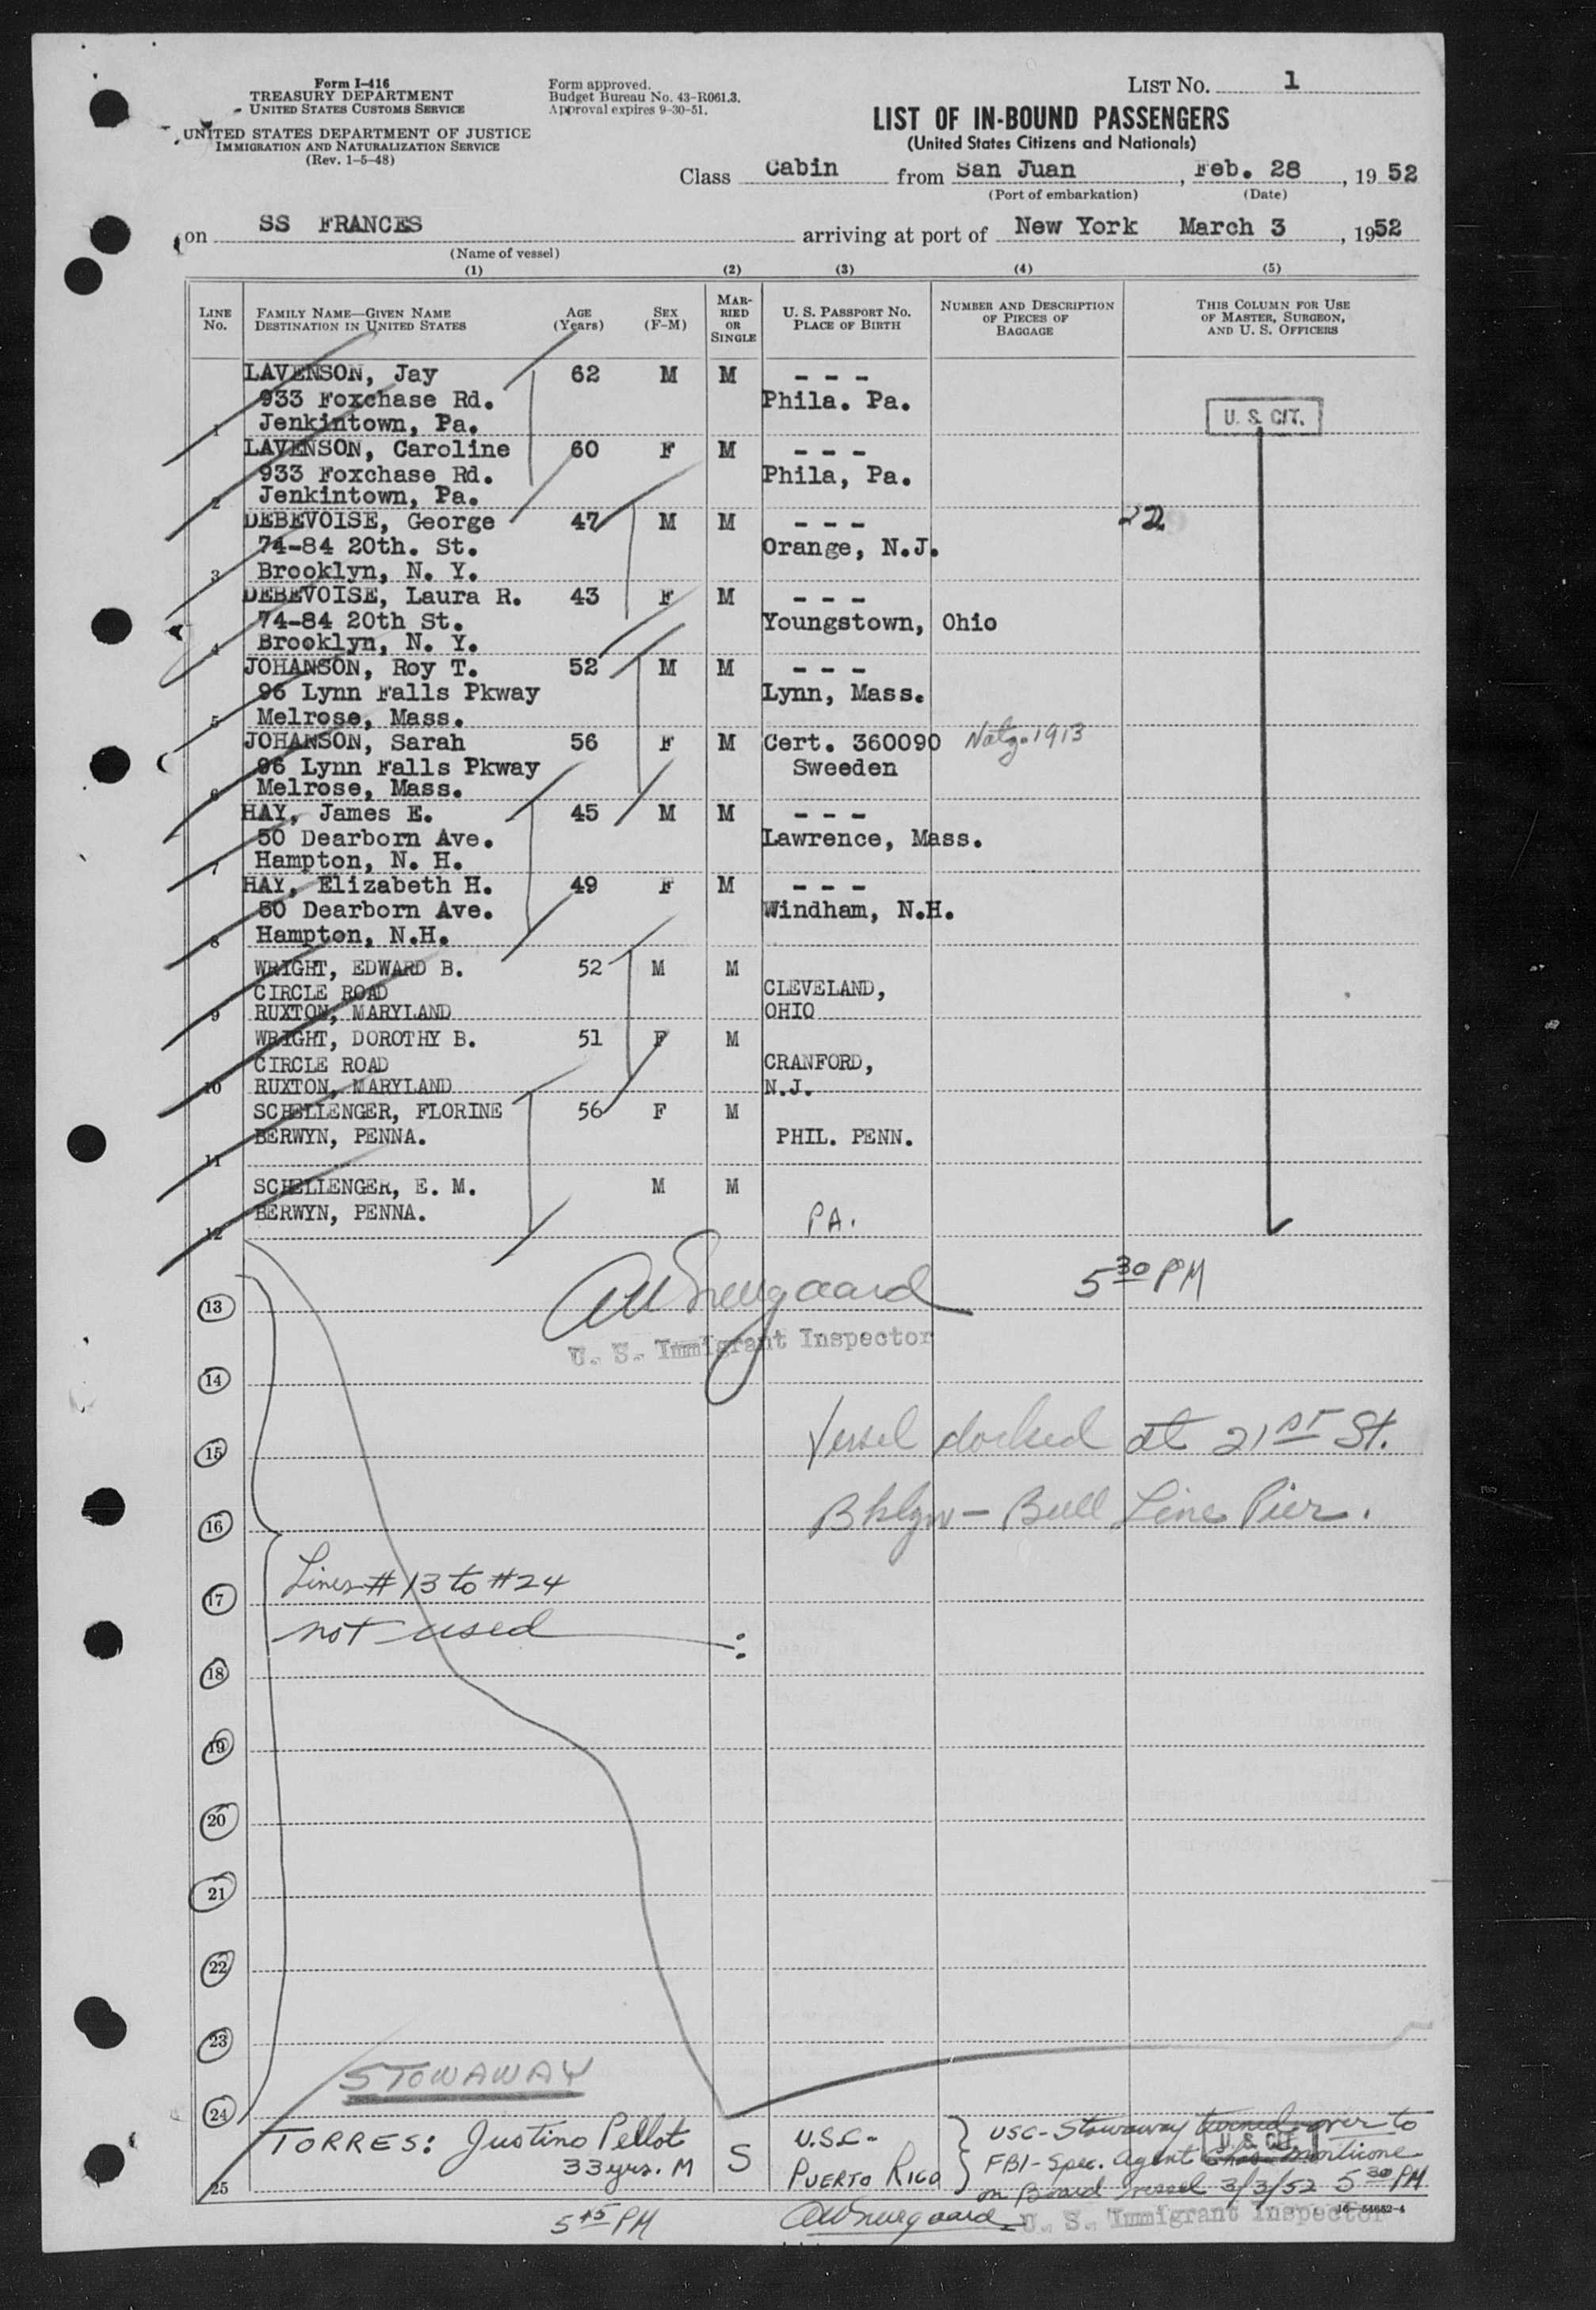 Form I-416
TREASURY DEPARTMENT
UNITED STATES CUSTOMS SERVICE
UNITED STATES DEPARTMENT OF JUSTICE
IMMIGRATION AND NATURALIZATION SERVICE
(Rev. 1-5-48)
Form approved.
Budget Bureau No. 43-R061.3.
Approval expires 9-30-51.
LIST NO. 1
LIST OF IN-BOUND PASSENGERS
(United States Citizens and Nationals)
Class Cabin from San Juan, Feb. 28, 1952
(Port of embarkation) (Date)
on SS FRANCES arriving at port of New York March 3, 1952
(Name of vessel)
(1) (2) (3) (4) (5)
LINE No.
FAMILY NAME—GIVEN NAME
DESTINATION IN UNITED STATES
AGE (Years)
SEX (F-M)
MARRIED OR SINGLE
U. S. PASSPORT NO.
PLACE OF BIRTH
NUMBER AND DESCRIPTION OF PIECES OF BAGGAGE
THIS COLUMN FOR USE OF MASTER, SURGEON, AND U. S. OFFICERS
LAVENSON, Jay 62 M M - - -
933 Foxchase Rd. Phila. Pa.
1 Jenkintown, Pa. U. S. CIT.
LAVENSON, Caroline 60 F M - - -
933 Foxchase Rd. Phila, Pa.
2 Jenkintown, Pa.
DEBEVOISE, George 47 M M - - -
74-84 20th. St. Orange, N.J.
3 Brooklyn, N. Y.
DEBEVOISE, Laura R. 43 F M - - -
74-84 20th St. Youngstown, Ohio
4 Brooklyn, N. Y.
JOHANSON, Roy T. 52 M M - - -
96 Lynn Falls Pkway Lynn, Mass.
5 Melrose, Mass.
JOHANSON, Sarah 56 F M Cert. 360090 Natz. 1913
96 Lynn Falls Pkway Sweeden
6 Melrose, Mass.
HAY, James E. 45 M M - - -
50 Dearborn Ave. Lawrence, Mass.
7 Hampton, N. H.
HAY, Elizabeth H. 49 F M - - -
50 Dearborn Ave. Windham, N.H.
8 Hampton, N.H.
WRIGHT, EDWARD B. 52 M M
CIRCLE ROAD CLEVELAND,
9 RUXTON, MARYLAND OHIO
WRIGHT, DOROTHY B. 51 F M
CIRCLE ROAD CRANFORD,
10 RUXTON, MARYLAND N.J.
SCHELLENGER, FLORINE 56 F M
BERWYN, PENNA. PHIL. PENN.
11
SCHELLENGER, E. M. M M
BERWYN, PENNA. PA.
12
5 30 PM
13
U. S. Immigrant Inspector
14
Vessel docked at 21ST St.
15
Bklyn - Bull Line Pier.
16
Lines # 13 to # 24
17
not used
18
19
20
21
22
23
STOWAWAY
24
TORRES: Justino Pellot S U.S.C- USC- Stowaway turned over to
33 yrs. M PUERTO RICO FBI- Spec. Agent
U. S. CIT.
25 on Board vessel 3/3/52 5 30 PM
5 45 PM U. S. Immigrant Inspector
16-54682-4